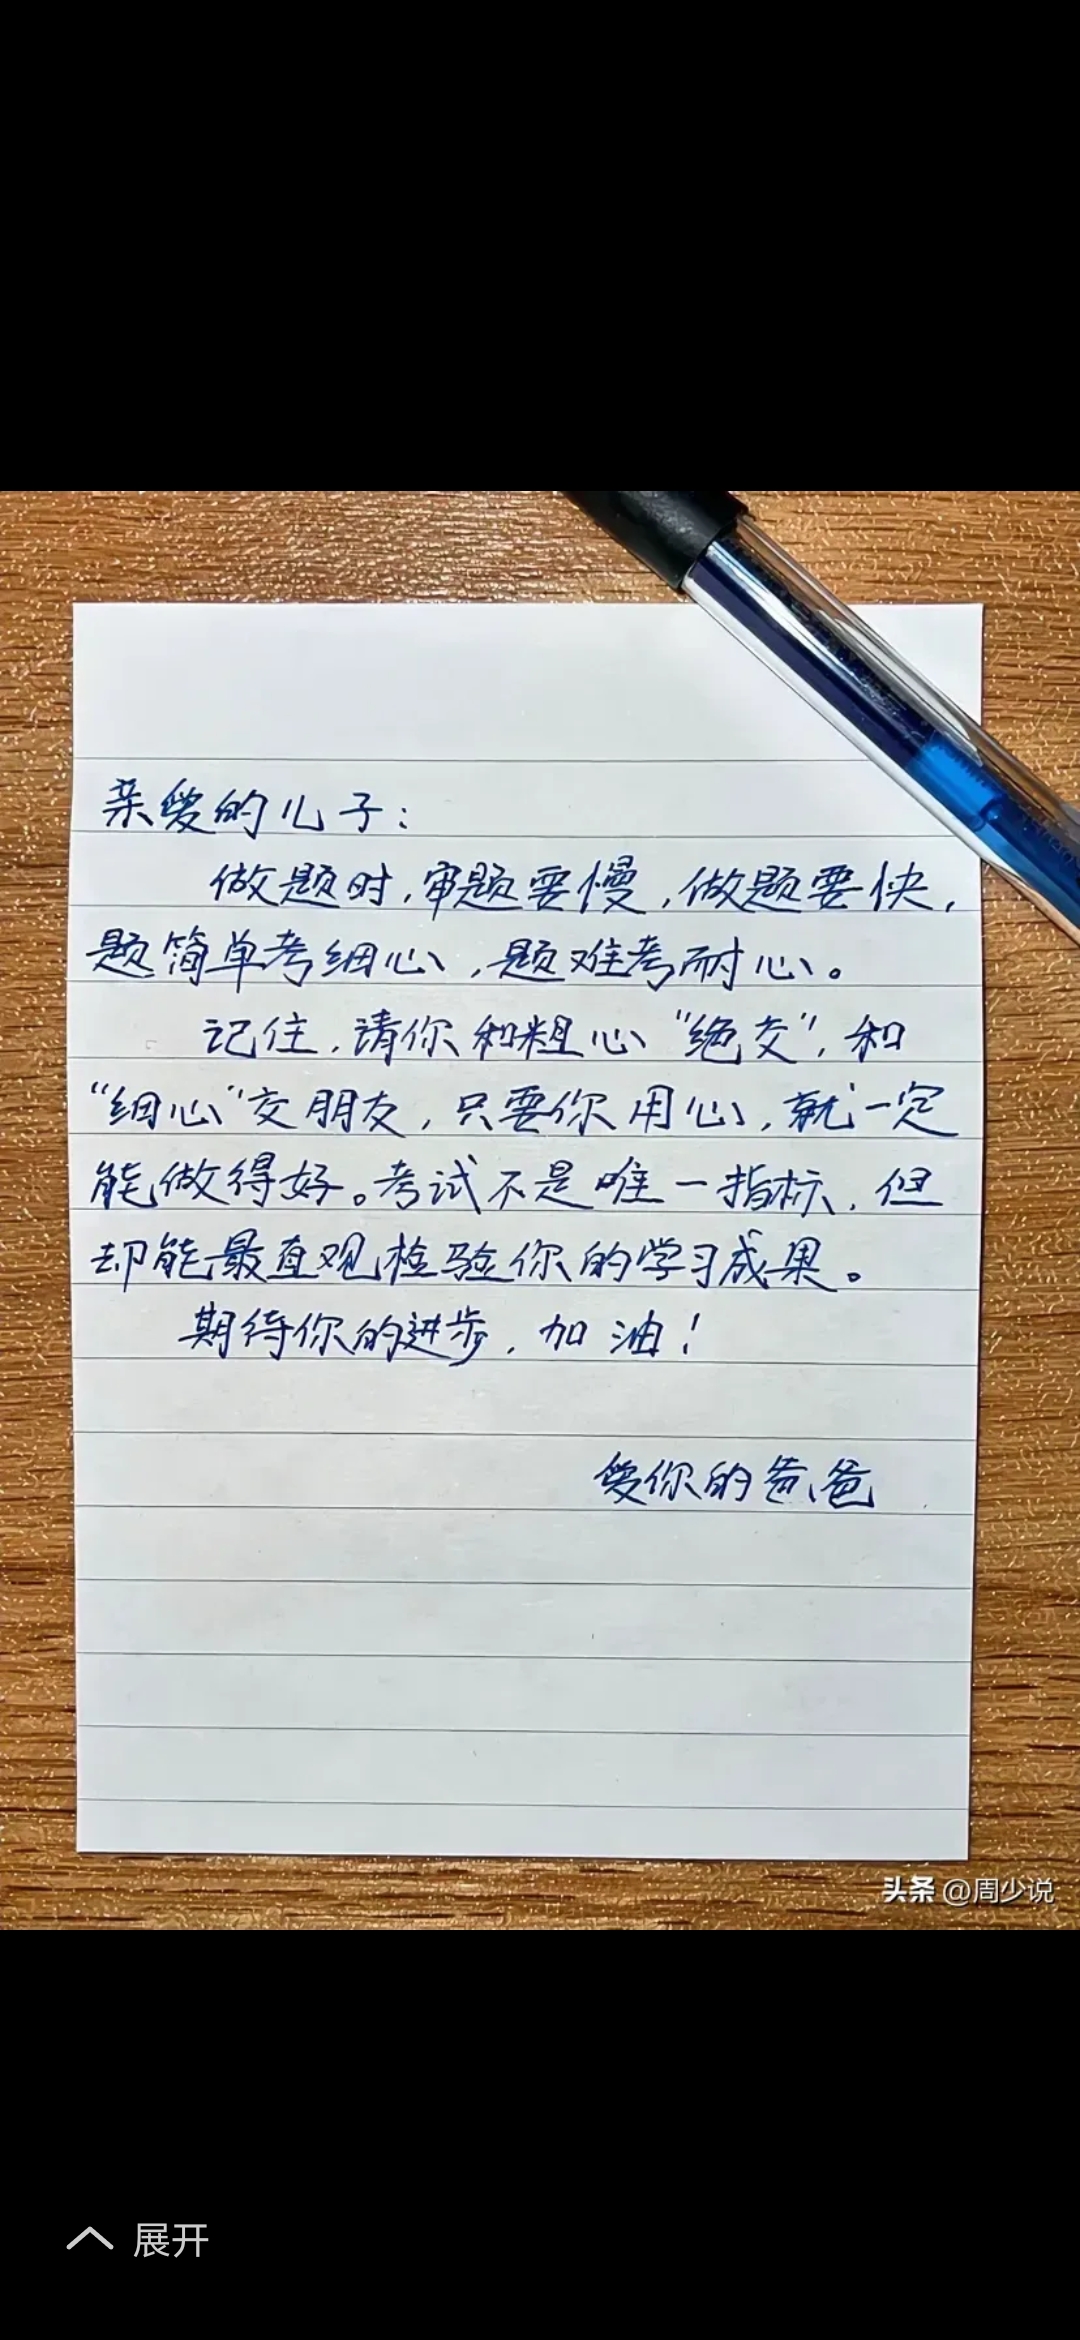 亲爱的儿子：
做题时，审题要慢，做题要快，
题简单考细心，题难考耐心。
记住，请你和粗心“绝交”，和
“细心”交朋友，只要你用心，就一定
能做得好。考试不是唯一指标，但
却能最直观检验你的学习成果。
期待你的进步，加油！
爱你的爸爸
头条 @周少说
展开